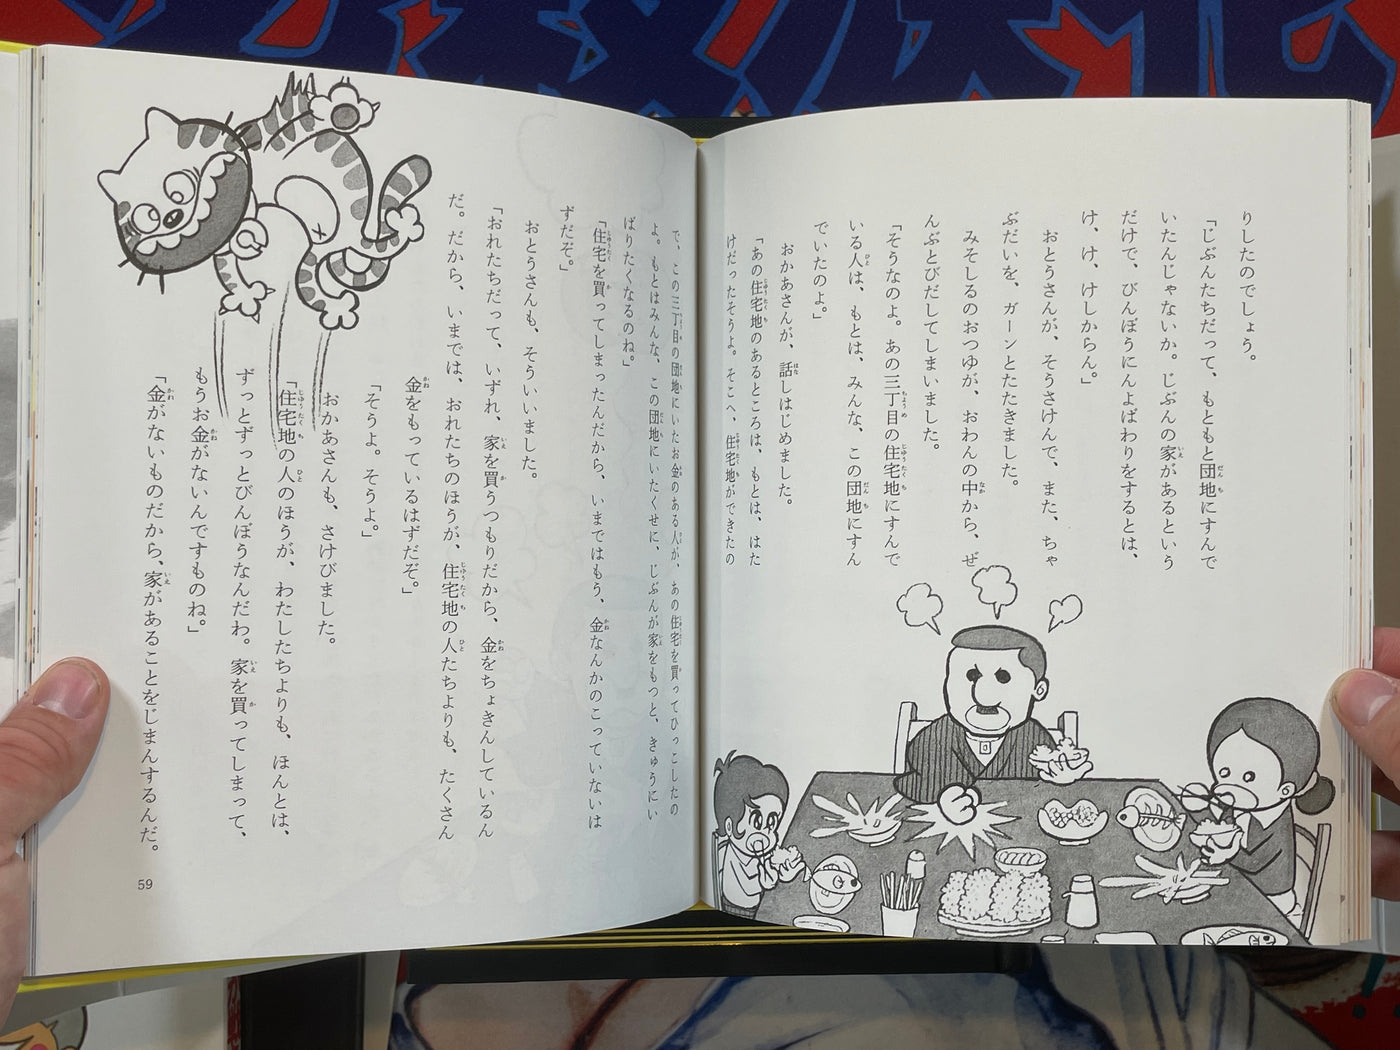 りしたのでしょう。
「じぶんたちだって、もともと団地にすんで
いたんじゃないか。じぶんの家があるという
だけで、びんぼうにんよばわりをするとは、
け、け、けしからん。」
おとうさんが、そうさけんで、また、ちゃ
ぶだいを、ガーンとたたきました。
みそしるのおつゆが、おわんの中から、ぜ
んぶとびだしてしまいました。
「そうなのよ。あの三丁目の住宅地にすんで
いる人は、もとは、みんな、この団地にすん
でいたのよ。」
おかあさんが、話しはじめました。
「あの住宅地のあるところは、もとは、はた
けだったそうよ。そこへ、住宅地ができたの
で、この三丁目の団地にいたお金のある人が、あの住宅を買ってひっこしたの
よ。もとはみんな、この団地にいたくせに、じぶんが家をもつと、きゅうにい
ばりたくなるのね。」
「住宅を買ってしまったんだから、いまではもう、金なんかのこっていないは
ずだぞ。」
おとうさんも、そういいました。
「おれたちだって、いずれ、家を買うつもりだから、金をちょきんしているん
だ。だから、いまでは、おれたちのほうが、住宅地の人たちよりも、たくさん
金をもっているはずだぞ。」
「そうよ。そうよ。」
おかあさんも、さけびました。
「住宅地の人のほうが、わたしたちよりも、ほんとは、
ずっとずっとびんぼうなんだわ。家を買ってしまって、
もうお金がないんですものね。」
「金がないものだから、家があることをじまんするんだ。
59